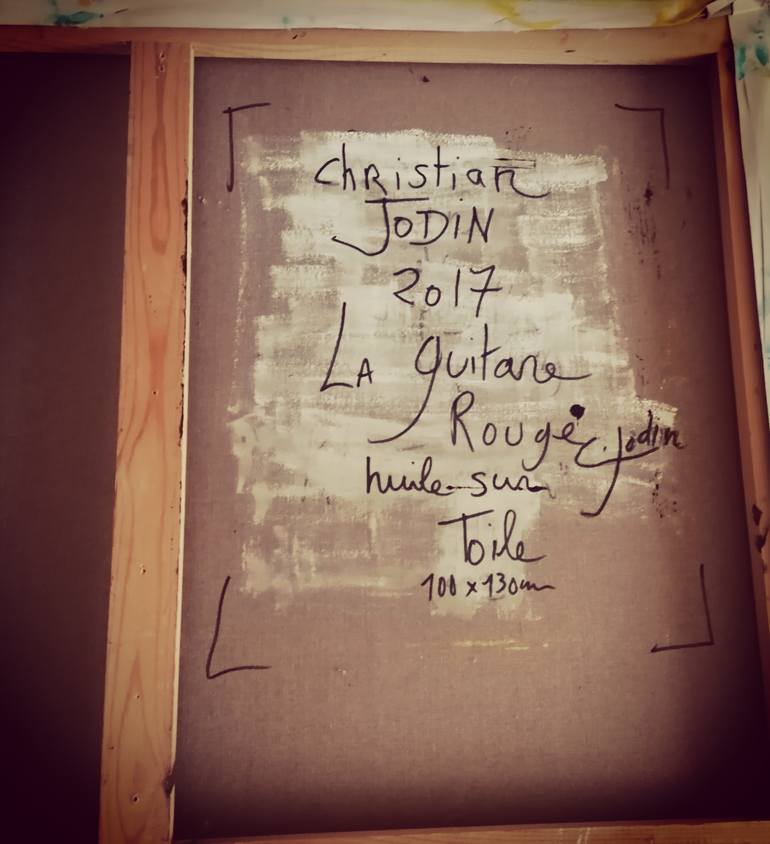 Christian
JODIN
2017
La guitare
Rouge
C. Jodin
huile sur
Toile
100 x 130 cm